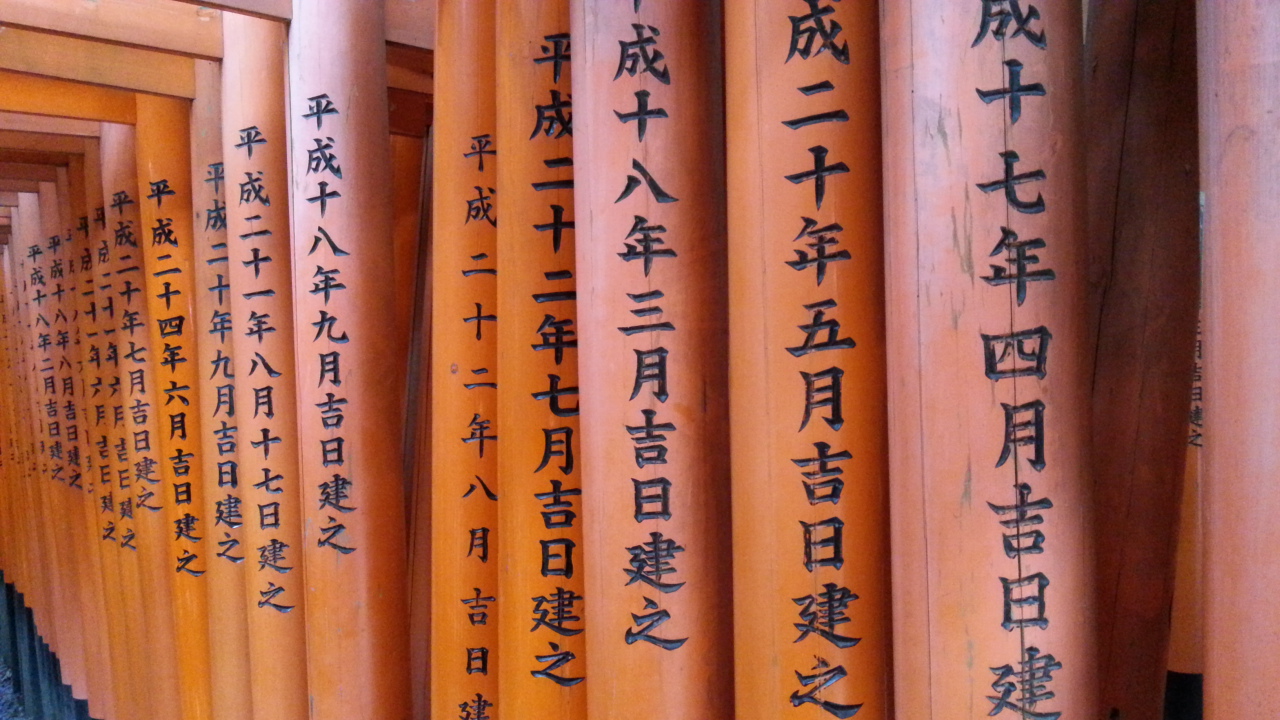 月吉日建之
成十七年四月吉日建
成二十年五月吉日建之
成十八年三月吉日建之
平成二十二年七月吉日建之
平成二十二年八月吉日建
平成十八年九月吉日建之
平成二十一年八月十七日建之
平成二十年九月吉日建之
平成二十四年六月吉日建之
平成二十年七月吉日建之
平成二十一年六月吉日建之
平成二十一年六月吉日建之
平成十八年八月吉日建之
平成十八年二月吉日建之